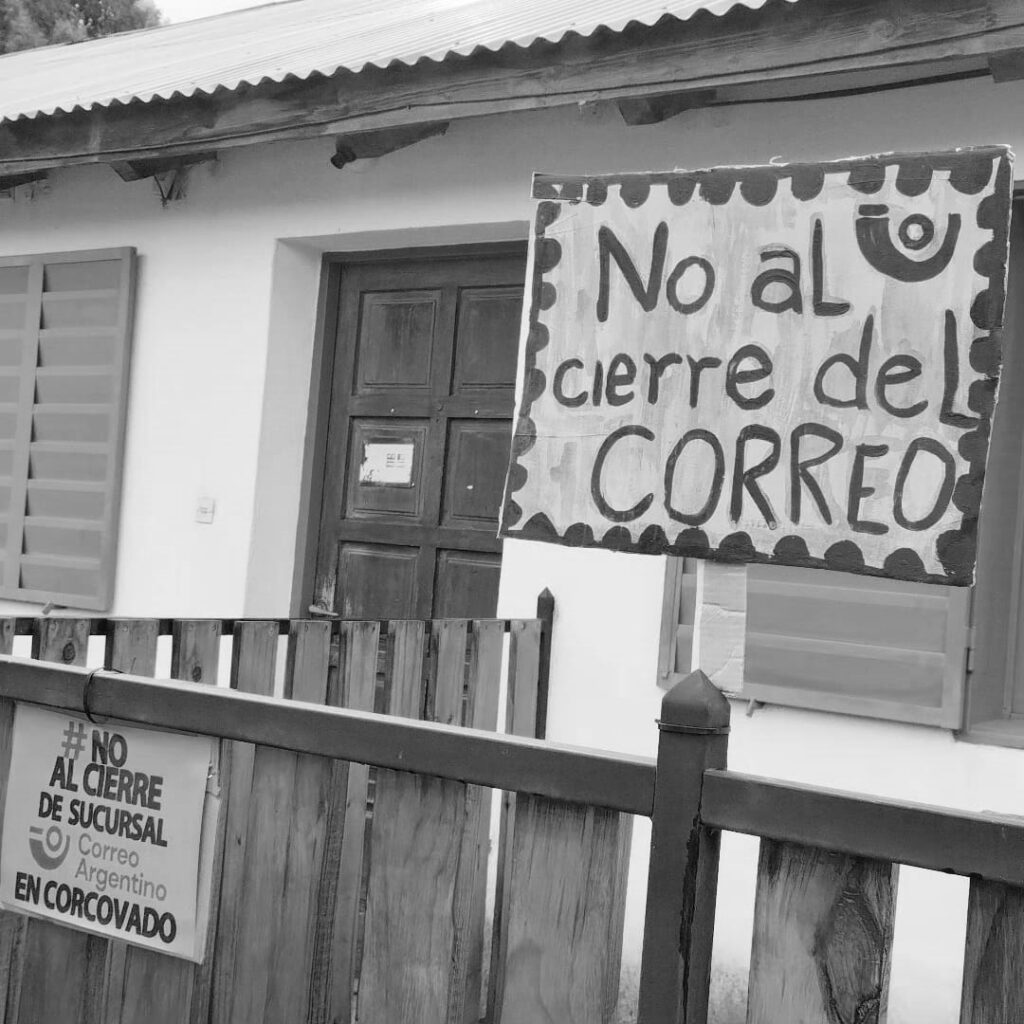 No al
cierre del
CORREO
#NO
AL CIERRE
DE SUCURSAL
Correo
Argentino
EN CORCOVADO